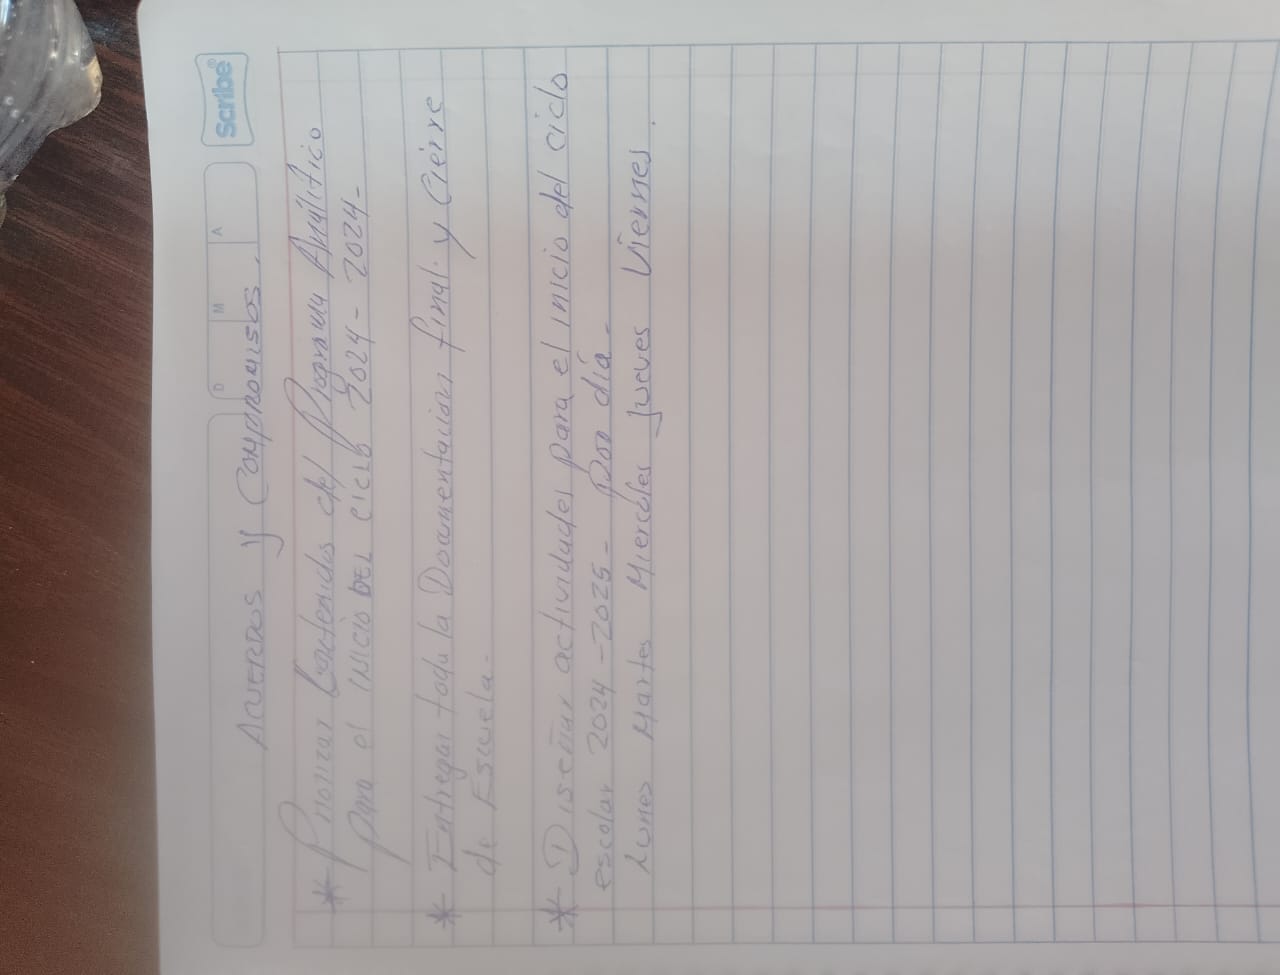 scribe®
D M A
ACUERDOS y COMPROMISOS.
* Priorizar Contenidos del Programa Analítico
para el INICIO DEL CICLO 2024 - 2024-
* Entregar toda la Documentacion final y Cierre
de Escuela-
* Diseñar actividades para el inicio del ciclo
escolar 2024 - 2025 - Por día-
Lunes Martes Miercoles Jueves Viernes.